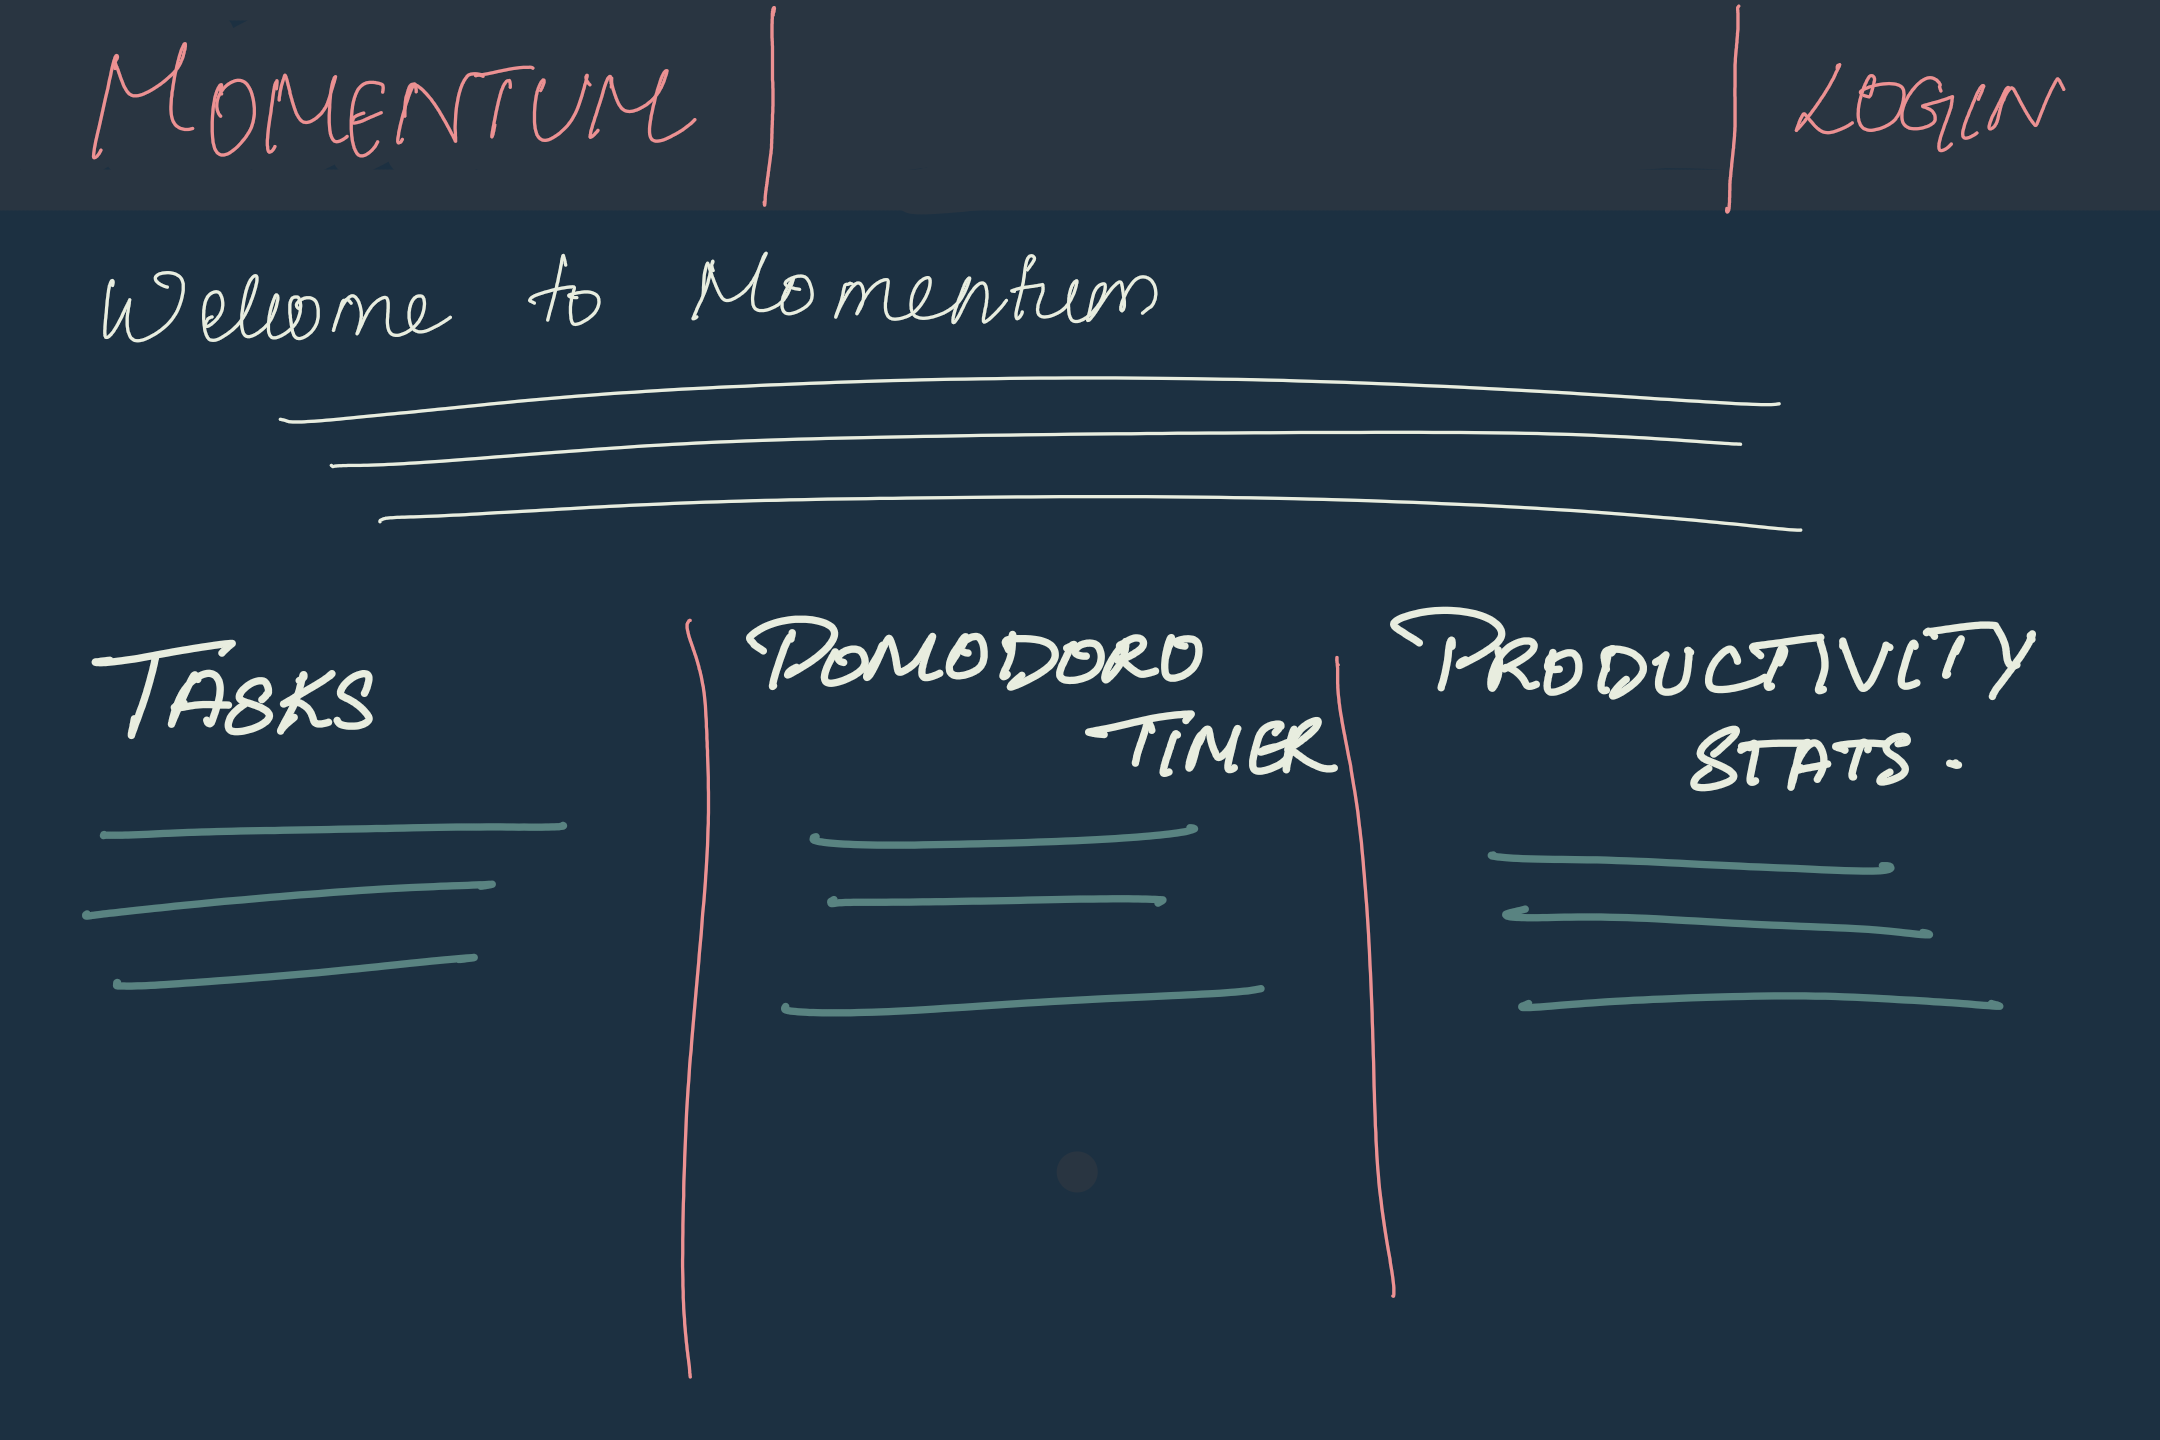 MOMENTUM LOGIN
Welcome to Momentum
TASKS
POMODORO
TIMER
PRODUCTIVITY
STATS.